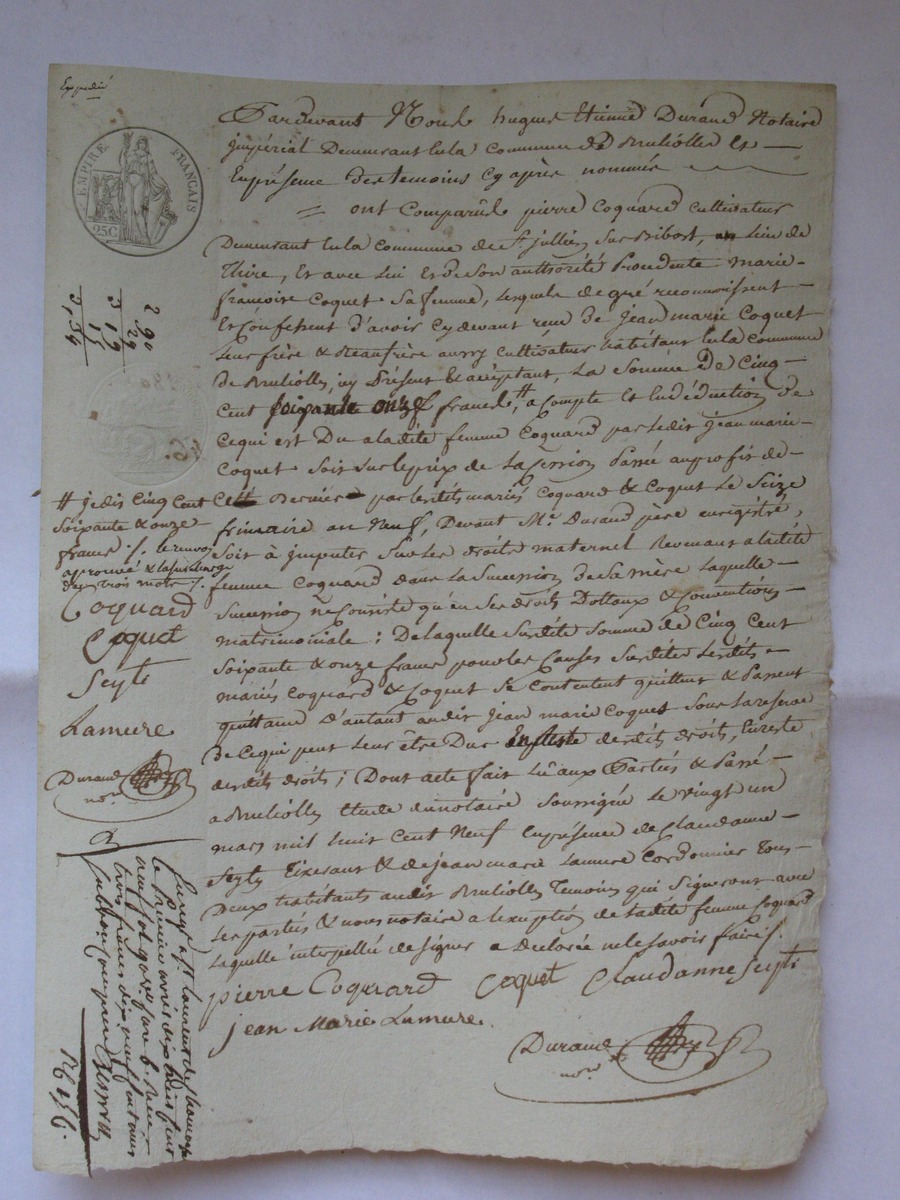 Expedié
EMPIRE FRANÇAIS
25.C
Pardevant Nous hugues Etienne Durand Notaire
impérial Demeurant en la Commune de Bruliolles et
En présence des temoins Cy après nommés
= ont Comparûs pierre Coquard Cultivateur
Demeurant en la Commune de St. jullien Sur Bibost, lieu de
Thire, Et avec Lui Et de Son authorité Procedente marie
francoise Coquet Sa femme, Lesquels de gré reconnoissent
Et Confessent D'avoir Cy devant recu De Jean marie Coquet
Leur frère & Beaufrère aussy Cultivateur habitant en la Commune
de Bruliolles, icy Présent & acceptant, La Somme De Cinq
Cent Soixante onze francs, # a Compte Et En déduction De
Ce qui est Du a ladite femme Coquard par Ledit jean marie
Coquet Soit Sur le prix de La Cession Passé au profit de
Ce Dernier par lesdits mariés Coquard & Coquet Le Seize
frimaire an Neuf, Devant Me. Durand père enregistré,
Soit à imputer Sur les droits maternel Revenant a ladite
femme Coquard dans La Succession de Sa mère Laquelle
Succession ne Consiste qu'en Ses droits Dottaux & Conventions
matrimoniale : De laquelle Susdite Somme de Cinq Cent
Soixante & onze francs pour les Causes Susdites Lesdits
mariés Coquard & Coquet Se Contentent quittent & Passent
quittance D'autant audit jean marie Coquet Sous la reserve
de Ce qui peut Leur être Due desdits droits, En reste
desdits droits ; Dont acte fait Lû aux Parties & Passé
a Bruliolles Etude du notaire Soussigné Le vingt un
mars mil huit Cent Neuf En présence de Claudanne
Seyti Tixerant & de jean marie Lamure Cordonnier Tous
Deux habitants audit Bruliolles Temoins qui Signeront avec
Les parties & nous notaire a l'exception de ladite femme Coquard
Laquelle interpellée de Signer a Declarée ne le Savoir faire /.
pierre Coquard Coquet Claudanne Seyti
jean Marie Lamure.
Durand
nore
2.90
29
3 19
15
3,34
# je dis Cinq Cent
Soixante & onze
francs /. le renvoi
aprouvé & la Surcharge
des trois mots /.
Coquard
Coquet
Seyti
Lamure
Durand
nore
Enregé. a St. Laurent de Chamousset
le premier avril dix huit cent
neuf fol. Recu
trois francs dix neuf centimes
Subvon. Comprise